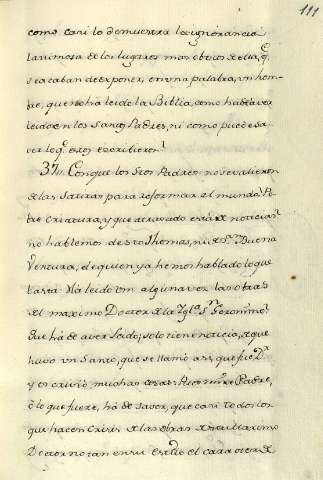 111
como casi lo demuestra la ignorancia
lastimosa de los lugares mas obvios de ella, q.
se acaban de exponer, en una palabra, un hom-
bre, que no ha leido la Biblia, como habrá
leido en los Santos Padres, ni como puede sa-
ver lo q.e estos escribieron?
37. Conque los Stos Padres no se valieron
de las Satiras para reformar el mundo? Po-
bre Criatura, y que atrasado está de noticias!
no hablemos de sto Thomas, ni de Sn. Buena
Ventura, de quien ya hemos hablado lo que
basta. Ha leido Vm alguna vez las obras
del maximo Doctor de la Ygl.a Sn Geronimo?
Que ha de aver leido, solo tiene noticia, de que
huvo un Santo, que se llamó assi, que fue Dr.
y escrivió muchas cosas. Pues mi Padre,
ó lo que fuere, há de saver, que casi todos los
que hacen Crisis de las obras de este Maximo
Doctor notan en su estilo el caracter de